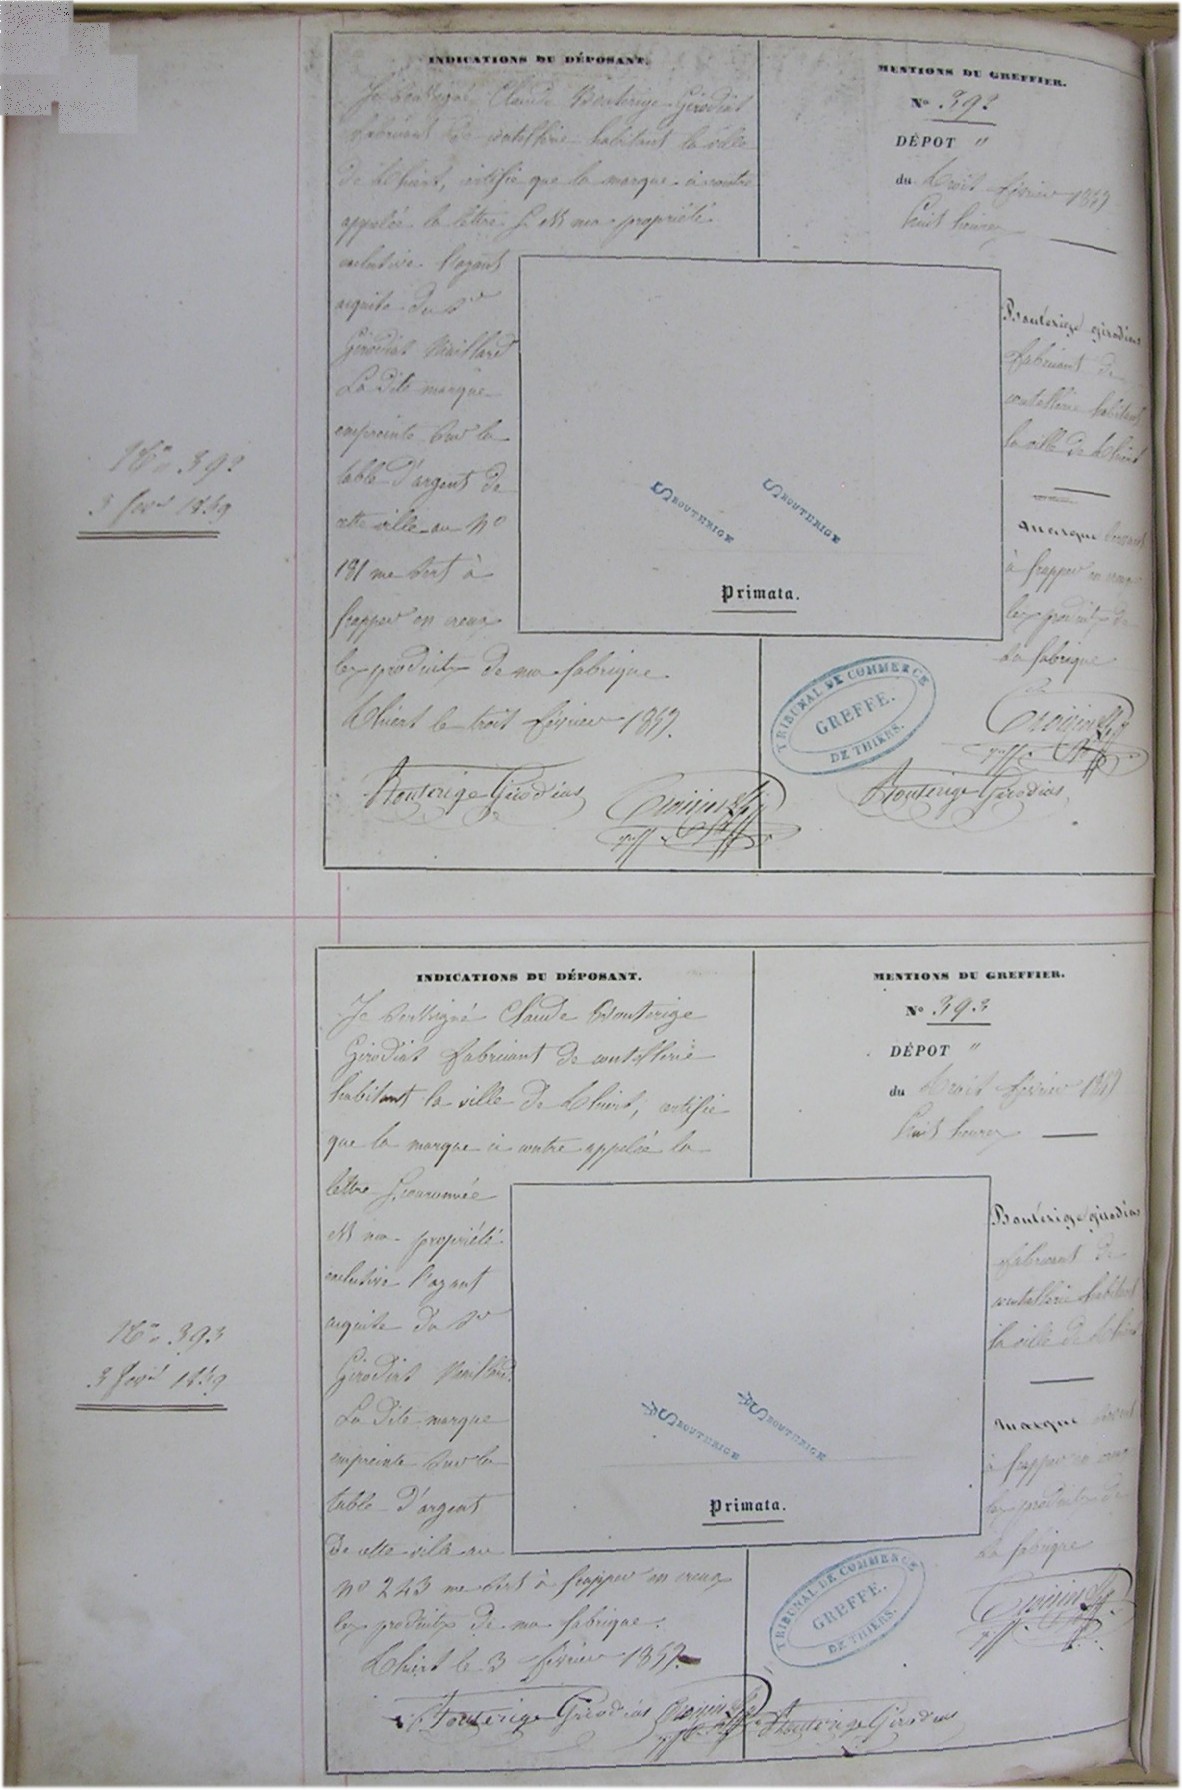 INDICATIONS DU DÉPOSANT.
Je soussigné Claude Bouterige Girodias
fabricant de coutellerie habitant la ville
de Thiers, certifie que la marque ci contre
appelée la lettre S est ma propriété
exclusive l'ayant
acquite du Sr
Girodias
La dite marque
empreinte sur la
table d'argent de
cette ville au No
181 me sert à
frapper en creux
les produits de ma fabrique
Thiers le trois février 1859.
Bouterige Girodias
MENTIONS DU GREFFIER.
No 392
DÉPOT "
du trois février 1859
huit heures
Bouterige girodias
fabricant de
coutellerie habitant
la ville de Thiers
marque servant
à frapper en creux
les produits de
sa fabrique
Bouterige Girodias
S BOUTERIGE
S BOUTERIGE
Primata.
TRIBUNAL DE COMMERCE
GREFFE.
DE THIERS.
No 392
3 fevr 1859
INDICATIONS DU DÉPOSANT.
Je soussigné Claude Bouterige
Girodias fabricant de coutellerie
habitant la ville de Thiers, certifie
que la marque ci contre appelée la
lettre S couronnée
est ma propriété
exclusive l'ayant
acquite du Sr
Girodias
La dite marque
empreinte sur la
table d'argent
de cette ville au
no 243 me sert à frapper en creux
les produits de ma fabrique.
Thiers le 3 février 1859.
Bouterige Girodias
MENTIONS DU GREFFIER.
No 393
DÉPOT "
du trois février 1859
huit heures
Bouterige girodias
fabricant de
coutellerie habitant
la ville de Thiers
marque servant
à frapper en creux
les produits de
sa fabrique
Bouterige Girodias
S BOUTERIGE
S BOUTERIGE
Primata.
TRIBUNAL DE COMMERCE
GREFFE.
DE THIERS.
No 393
3 fevr 1859